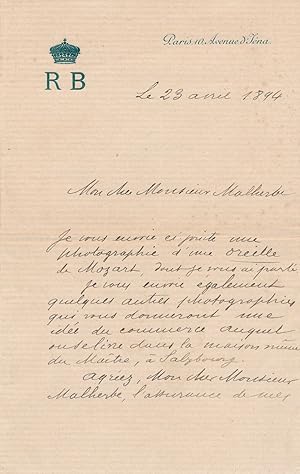 R B
Paris, 10, Avenue d'Iéna.
Le 23 avril 1894
Mon cher Monsieur Malherbe
Je vous envoie ci-jointe une
photographie d'une oreille
de Mozart, dont je vous ai parlé
je vous envoie également
quelques autres photographies
qui vous donneront une
idée du commerce auquel
on se livre dans la maison même
du Maître, à Salzbourg.
Agréez, Mon cher Monsieur
Malherbe, l'assurance de mes